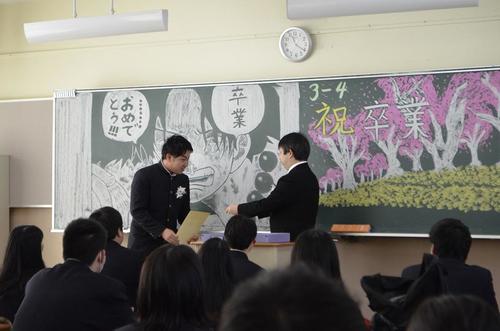 ・・・・・・・・
おめで
とう!!!
卒業
3-4
祝卒業